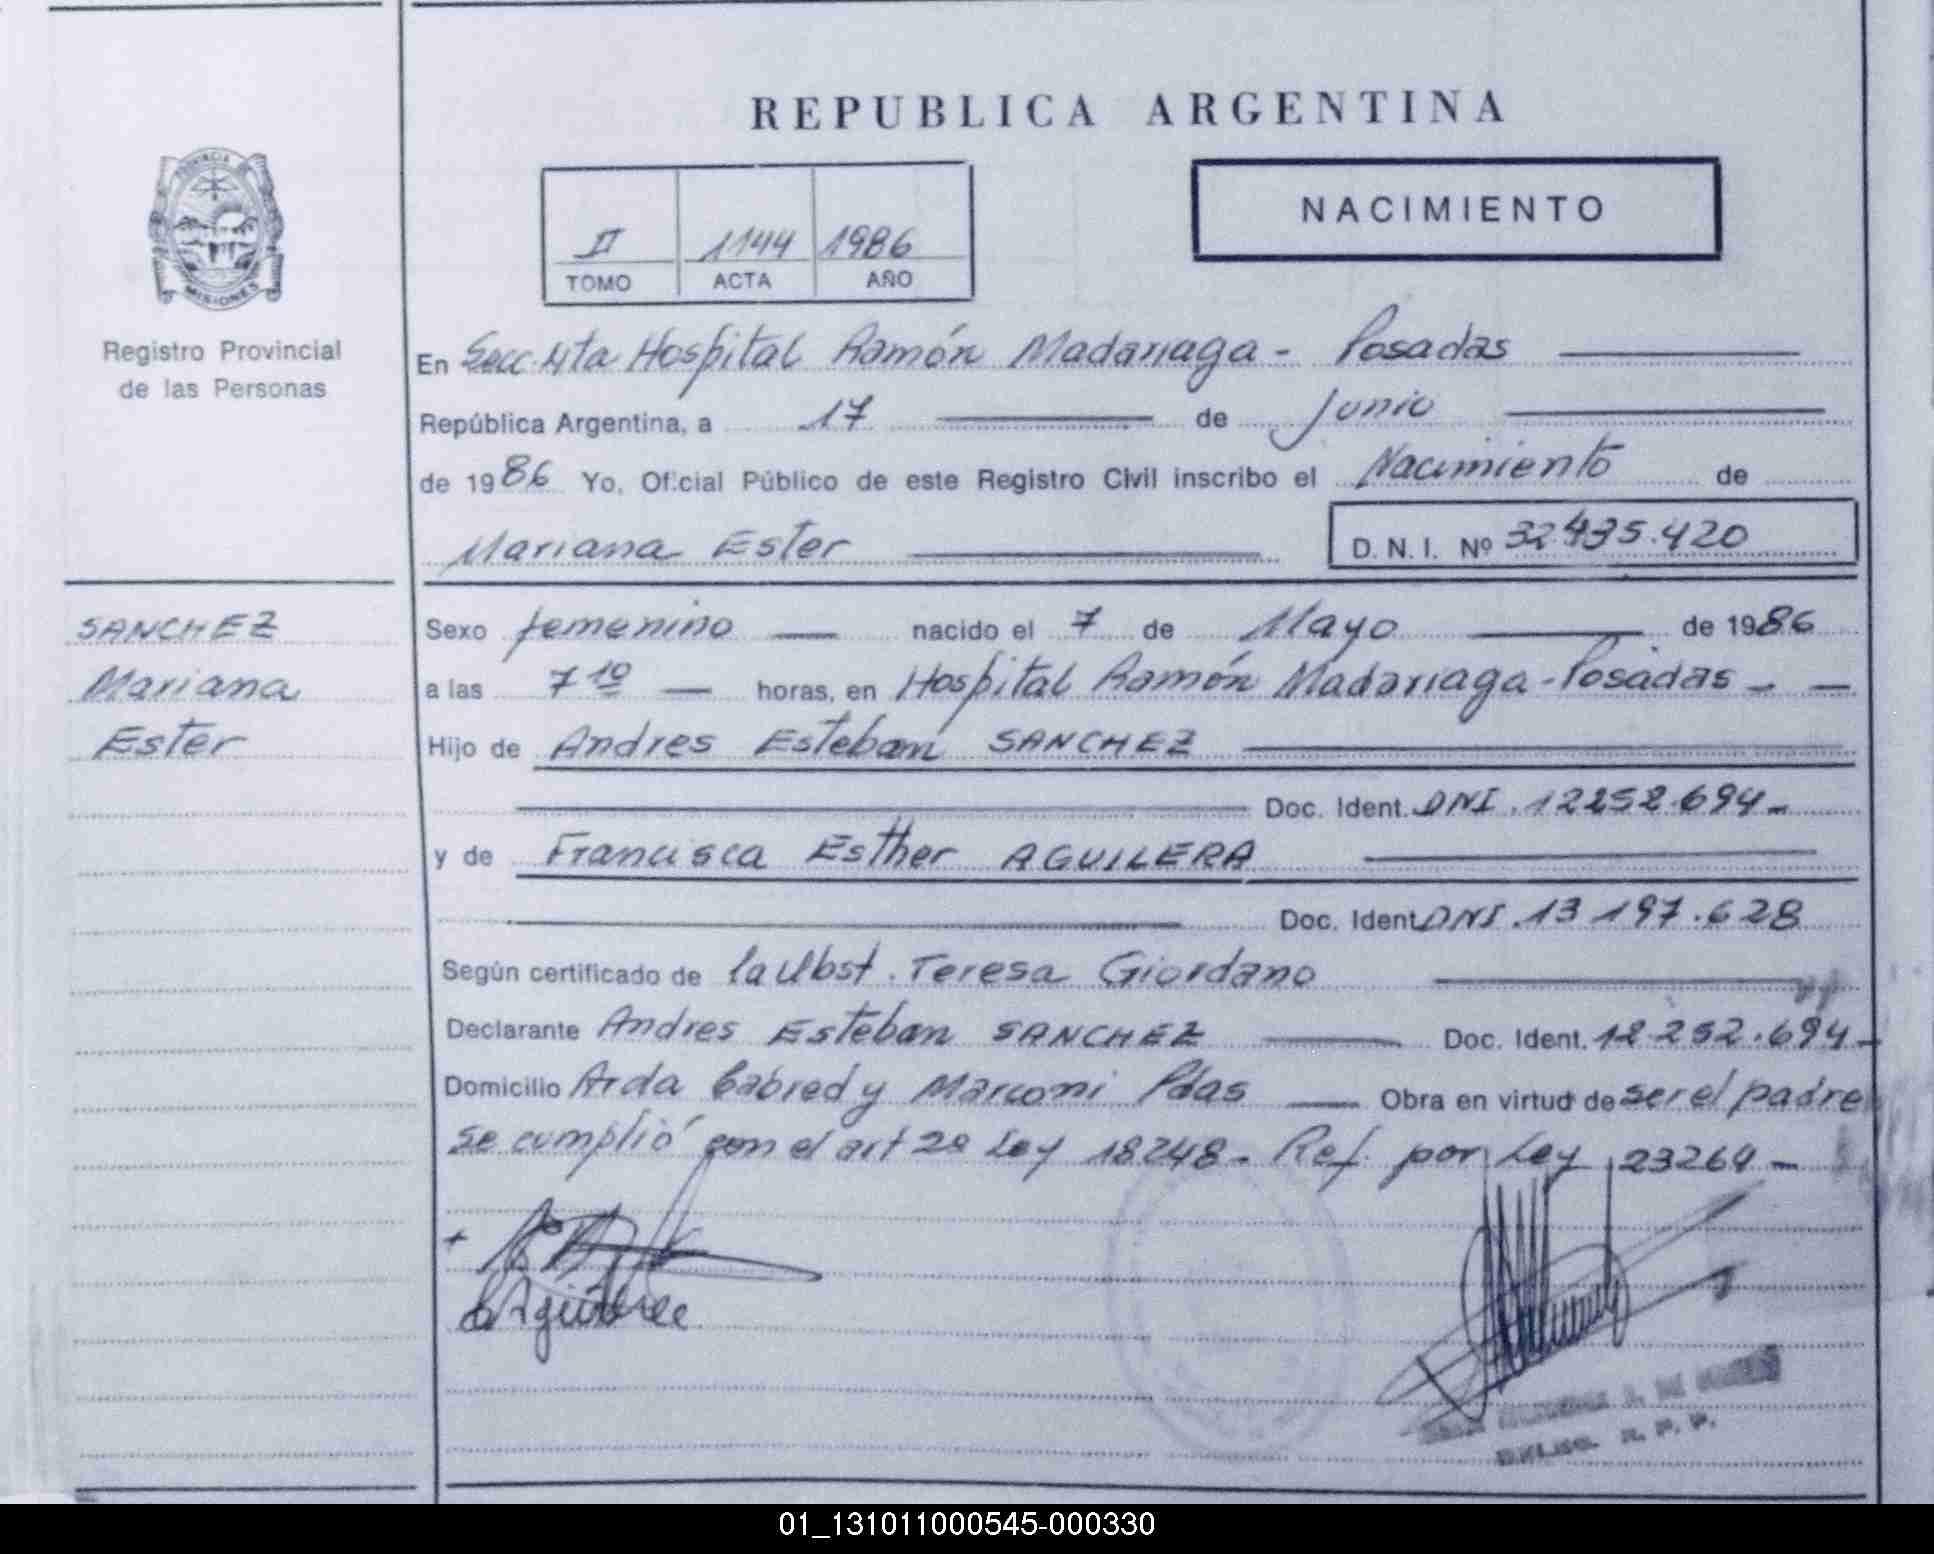 REPUBLICA ARGENTINA
PROVINCIA
MISIONES
Registro Provincial
de las Personas
NACIMIENTO
II 1144 1986
TOMO ACTA AÑO
En Secc. 4ta Hospital Ramón Madariaga - Posadas
República Argentina, a 17 de Junio
de 1986 Yo, Oficial Público de este Registro Civil inscribo el Nacimiento de
Mariana Ester D. N. I. Nº 32435.420
SANCHEZ
Mariana
Ester
Sexo femenino nacido el 7 de Mayo de 1986
a las 7 10 horas, en Hospital Ramón Madariaga - Posadas
Hijo de Andres Esteban SANCHEZ
Doc. Ident. DNI. 12252.694-
y de Francisca Esther AGUILERA
Doc. Ident. DNI. 13 197.628
Según certificado de la Obst. Teresa Giordano
Declarante Andres Esteban SANCHEZ Doc. Ident. 12 252.694-
Domicilio Avda Cabred y Marconi Pdas Obra en virtud de ser el padre
Se cumplió con el art 2º Ley 18248. Ref. por Ley 23264 -
R. P. P.
01_131011000545-000330